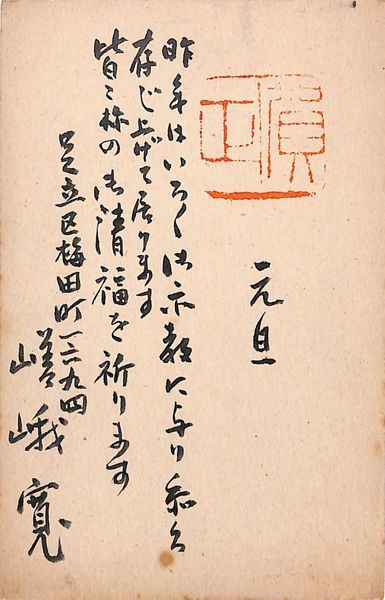 賀正
元旦
昨年はいろく御示教に与り忝く
存じ上げて居ります
皆々様の御清福を祈ります
足立区梅田町一三九四
嵯峨寛